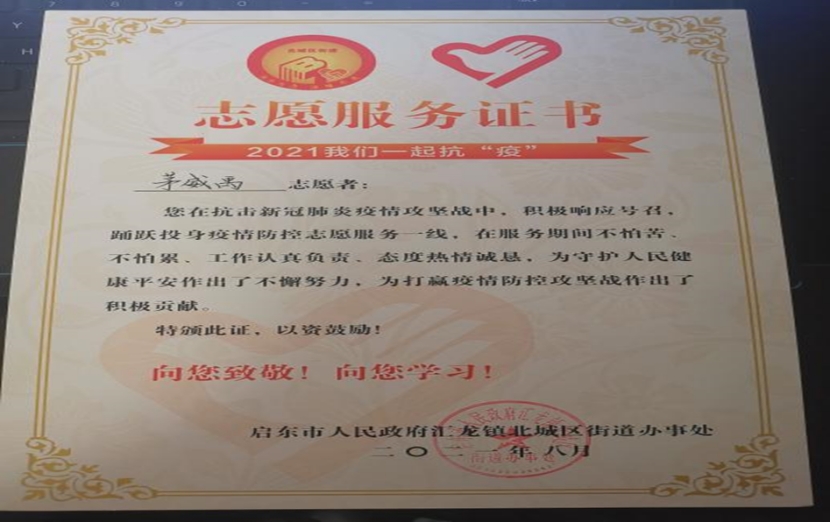 北城区街道
志愿服务证书
2021我们一起抗“疫”
茅威禹 志愿者：
您在抗击新冠肺炎疫情攻坚战中，积极响应号召，
踊跃投身疫情防控志愿服务一线，在服务期间不怕苦、
不怕累、工作认真负责、态度热情诚恳，为守护人民健
康平安作出了不懈努力，为打赢疫情防控攻坚战作出了
积极贡献。
特颁此证，以资鼓励！
向您致敬！向您学习！
启东市人民政府汇龙镇北城区街道办事处
二〇二一年八月
街道办事处